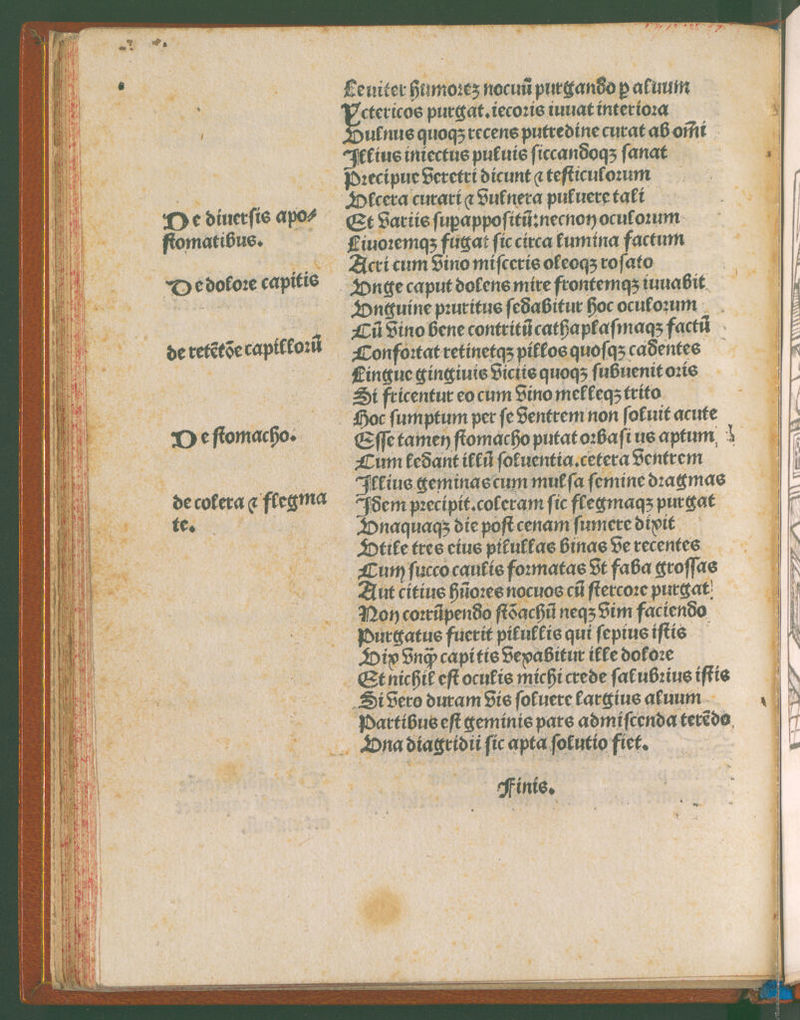 Leuiter humorez nocuū purgando ꝑ aluum
Yctericos purgat.iecoris iuuat interiora
Vulnus quoqꝫ recens putredine curat ab om̄i
Illius iniectus puluis siccandoqꝫ sanat
Precipue veretri dicunt ⁊ testiculorum
Vlcera curari ⁊ vulnera puluere tali
De diuersis apo⸗
stomatibus.
Et variis supappositū:necnon oculorum
Liuoremqꝫ fugat sic circa lumina factum
Acri cum vino misceris oleoqꝫ rosato
De dolore capitis
Vnge caput dolens mire frontemqꝫ iuuabit
Vnguine pruritus sedabitur hoc oculorum
Cū vino bene contritū cathaplasmaqꝫ factū
de retētōe capillorū
Confortat retinetqꝫ pillos quosqꝫ cadentes
Lingue gingiuis viciis quoqꝫ subuenit oris
Si fricentur eo cum vino melleqꝫ trito
Hoc sumptum per se ventrem non soluit acute
De stomacho.
Esse tamen stomacho putat orbasi us aptum
Cum ledant illū soluentia.cetera ventrem
Illius geminas cum mulsa semine dragmas
de colera ⁊ flegma
te.
Idem precipit.coleram sic flegmaqꝫ purgat
Vnaquaqꝫ die post cenam sumere dixit
Vtile tres eius pilullas binas ve recentes
Cum succo caulis formatas vt faba grossas
Aut citius hūores nocuos cū stercore purgat
Non corrūpendo stōachū neqꝫ vim faciendo
Purgatus fuerit pilullis qui sepius istis
Vix vnꝙ̄ capitis vexabitur ille dolore
Et nichil est oculis michi crede salubrius istis
Si vero duram vis soluere largius aluum
Partibus est geminis pars admiscenda terēdo
Vna diagridii sic apta solutio fiet.
Finis.